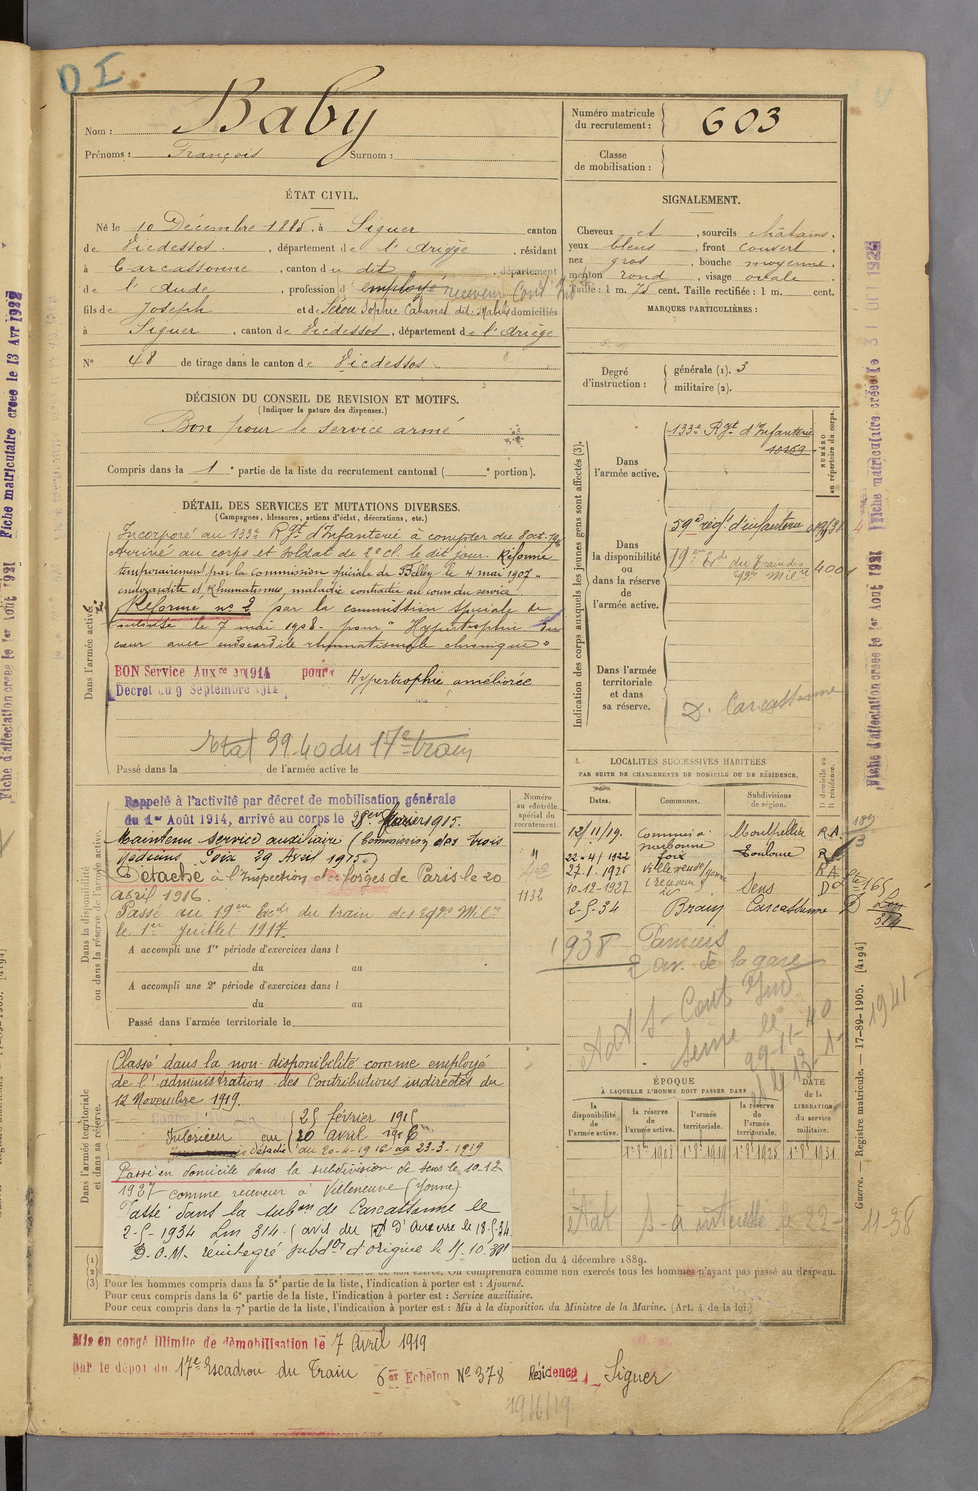 O I
Nom : Baby
Prénoms : François Surnom :
Numéro matricule du recrutement : 603
Classe de mobilisation :
ÉTAT CIVIL.
Né le 10 Décembre 1885, à Siguer canton
de Vicdessos, département de l'Ariège, résidant
à Carcassonne, canton du dit, département
de l'Aude, profession d'employé receveur Cont. Ind
fils de Joseph et de Sophie Cabanal dit domiciliés
à Siguer, canton de Vicdessos, département de l'Ariège
N° 48 de tirage dans le canton de Vicdessos.
SIGNALEMENT.
Cheveux et, sourcils châtains.
yeux bleus, front couvert
nez gros, bouche moyenne.
menton rond, visage ovale
Taille : 1 m. 75 cent. Taille rectifiée : 1 m. cent.
MARQUES PARTICULIÈRES :
Degré d'instruction : générale (1). 3
militaire (2).
DÉCISION DU CONSEIL DE REVISION ET MOTIFS.
(Indiquer la nature des dispenses.)
Bon pour le service armé
Compris dans la 1e partie de la liste du recrutement cantonal ( e portion).
DÉTAIL DES SERVICES ET MUTATIONS DIVERSES.
(Campagnes, blessures, actions d'éclat, décorations, etc.)
Dans l'armée active.
Incorporé au 133e Rgt d'Infanterie à compter du 8 oct. 1906
Arrivé au corps et soldat de 2e cl. le dit jour. Réformé
temporairement par la commission spéciale de Belley le 4 mai 1907
endocardite et Rhumatisme, maladie contractée au cours du service.
Réformé n° 2 par la commission spéciale de
le 7 mai 1908. pour "Hypertrophie du
cœur avec endocardite rhumatismale chronique"
BON Service Auxre en 1914 pour Hypertrophie améliorée
Décret du 9 Septembre 1914
Etat 39-40 du 17e train
Passé dans la de l'armée active le
Indication des corps auxquels les jeunes gens sont affectés (3).
NUMÉRO au répertoire du corps.
Dans l'armée active.
133e Rgt d'Infanterie
10169
Dans la disponibilité ou dans la réserve de l'armée active.
59e rég. d'infanterie
19em Ed. du Train des Eqges Milre 4004
Dans l'armée territoriale et dans sa réserve.
D. Carcassonne
Dans la disponibilité ou dans la réserve de l'armée active.
Rappelé à l'activité par décret de mobilisation générale
du 1er Août 1914, arrivé au corps le 25 février 1915.
Maintenu service auxiliaire (Commission des trois
médecins Foix 29 Avril 1915)
Détaché à l'Inspection des forges de Paris le 20
Avril 1916.
Passé au 19em Ecd. du train des Eqges Milre
le 1er Juillet 1917.
A accompli une 1re période d'exercices dans l
du au
A accompli une 2e période d'exercices dans l
du au
Passé dans l'armée territoriale le
Numéro au contrôle spécial du recrutement.
1132
LOCALITÉS SUCCESSIVES HABITÉES
PAR SUITE DE CHANGEMENTS DE DOMICILE OU DE RÉSIDENCE.
Dates. Communes. Subdivisions de région. D domicile ou R résidence.
12/11/19. Commis à Narbonne Montpellier R A
22-4/1922 Foix Toulouse R
27.1.1926 Villeneuve/Yonne R A
10-12-1927 (receveur) Sens D 165
2-5-34 Bram Carcassonne D Lm 314
1938 Pamiers
2 av. de la gare
Adt S- Cont Ind
Seine le
29-11-40
1941
Dans l'armée territoriale et dans sa réserve.
Classé dans la non-disponibilité comme employé
de l'administration des Contributions indirectes du
12 Novembre 1919.
Intérieur du 25 février 1915 au 20 avril 1916
Détaché du 20-4-1916 au 23-3-1919
Passé en domicile dans la subdivision de Sens le 10.12
1937 comme receveur à Villeneuve (Yonne)
Passé dans la subon de Carcassonne le
2-5-1934 Lm 314. (avis du d'Auxerre le 18-5-34.
D.O.M. réintégré subdon d'origine le 11.10.38
ÉPOQUE
À LAQUELLE L'HOMME DOIT PASSER DANS
la disponibilité de l'armée active. la réserve de l'armée active. l'armée territoriale. la réserve de l'armée territoriale. DATE de la LIBÉRATION du service militaire.
1er 8bre 1908 1er 8bre 1919 1er 8bre 1925 1er 8bre 1931
Adt S- à intéressé le 22-11-38
(1) ction du 4 décembre 1889.
(2) ou non exercé. On comprendra comme non exercés tous les hommes n'ayant pas passé au drapeau.
(3) Pour les hommes compris dans la 5e partie de la liste, l'indication à porter est : Ajourné.
Pour ceux compris dans la 6e partie de la liste, l'indication à porter est : Service auxiliaire.
Pour ceux compris dans la 7e partie de la liste, l'indication à porter est : Mis à la disposition du Ministre de la Marine. (Art. 4 de la loi.)
Mis en congé illimité de démobilisation le 7 Avril 1919
par le dépôt du 17e Escadron du Train 6em Echelon N° 378 Résidence Siguer
19/6/19
Guerre. — Registre matricule. — 17-89-1905. [4194]
Fiche matriculaire créée le 13 Avr 1922
Fiche d'affectation créée le 1er Août 1921
Fiche matriculaire créée le 31 OCT 1924
Fiche d'affectation créée le 1er Août 1921